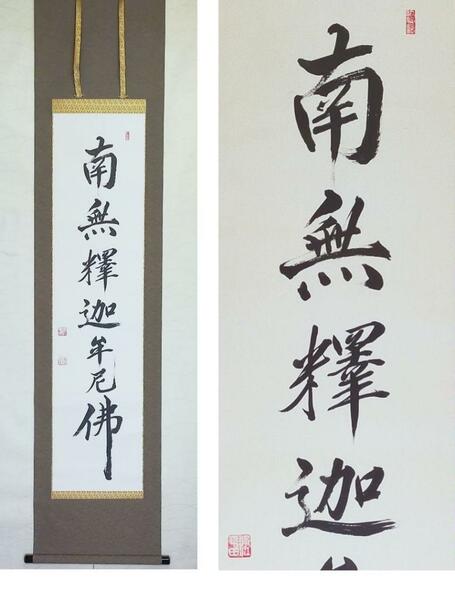 南無釋迦牟尼佛
南無釋迦